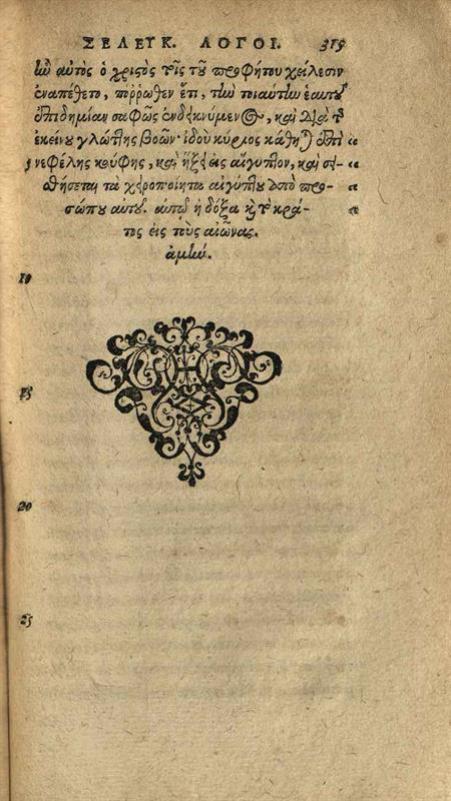 ΣΕΛΕΥΚ. ΛΟΓΟΙ. 315
ἣν αὐτὸς ὁ χριστὸς τοῖς τοῦ προφήτου χείλεσιν
ἐναπέθετο, πόῤῥωθεν ἔτι, τὴν τοιαύτην ἑαυτοῦ
ἐπιδημίαν σαφῶς ἐνδεικνύμενος, καὶ διὰ τ῀
ἐκείνου γλώττης βοῶν· ἰδοὺ κύριος κάθη) ἐπὶ "
5 νεφέλης κούφης, καὶ ἥξει εἰς αἴγυπτον, καὶ σει- "
σθήσεται τὰ χειροποίητα αἰγύπτου ἀπὸ προ- "
σώπου αὐτοῦ. αὐτῷ ἡ δόξα κὶ τὸ κρά- "
τος εἰς τοὺς αἰῶνας.
ἀμήν.
10
15
20
25